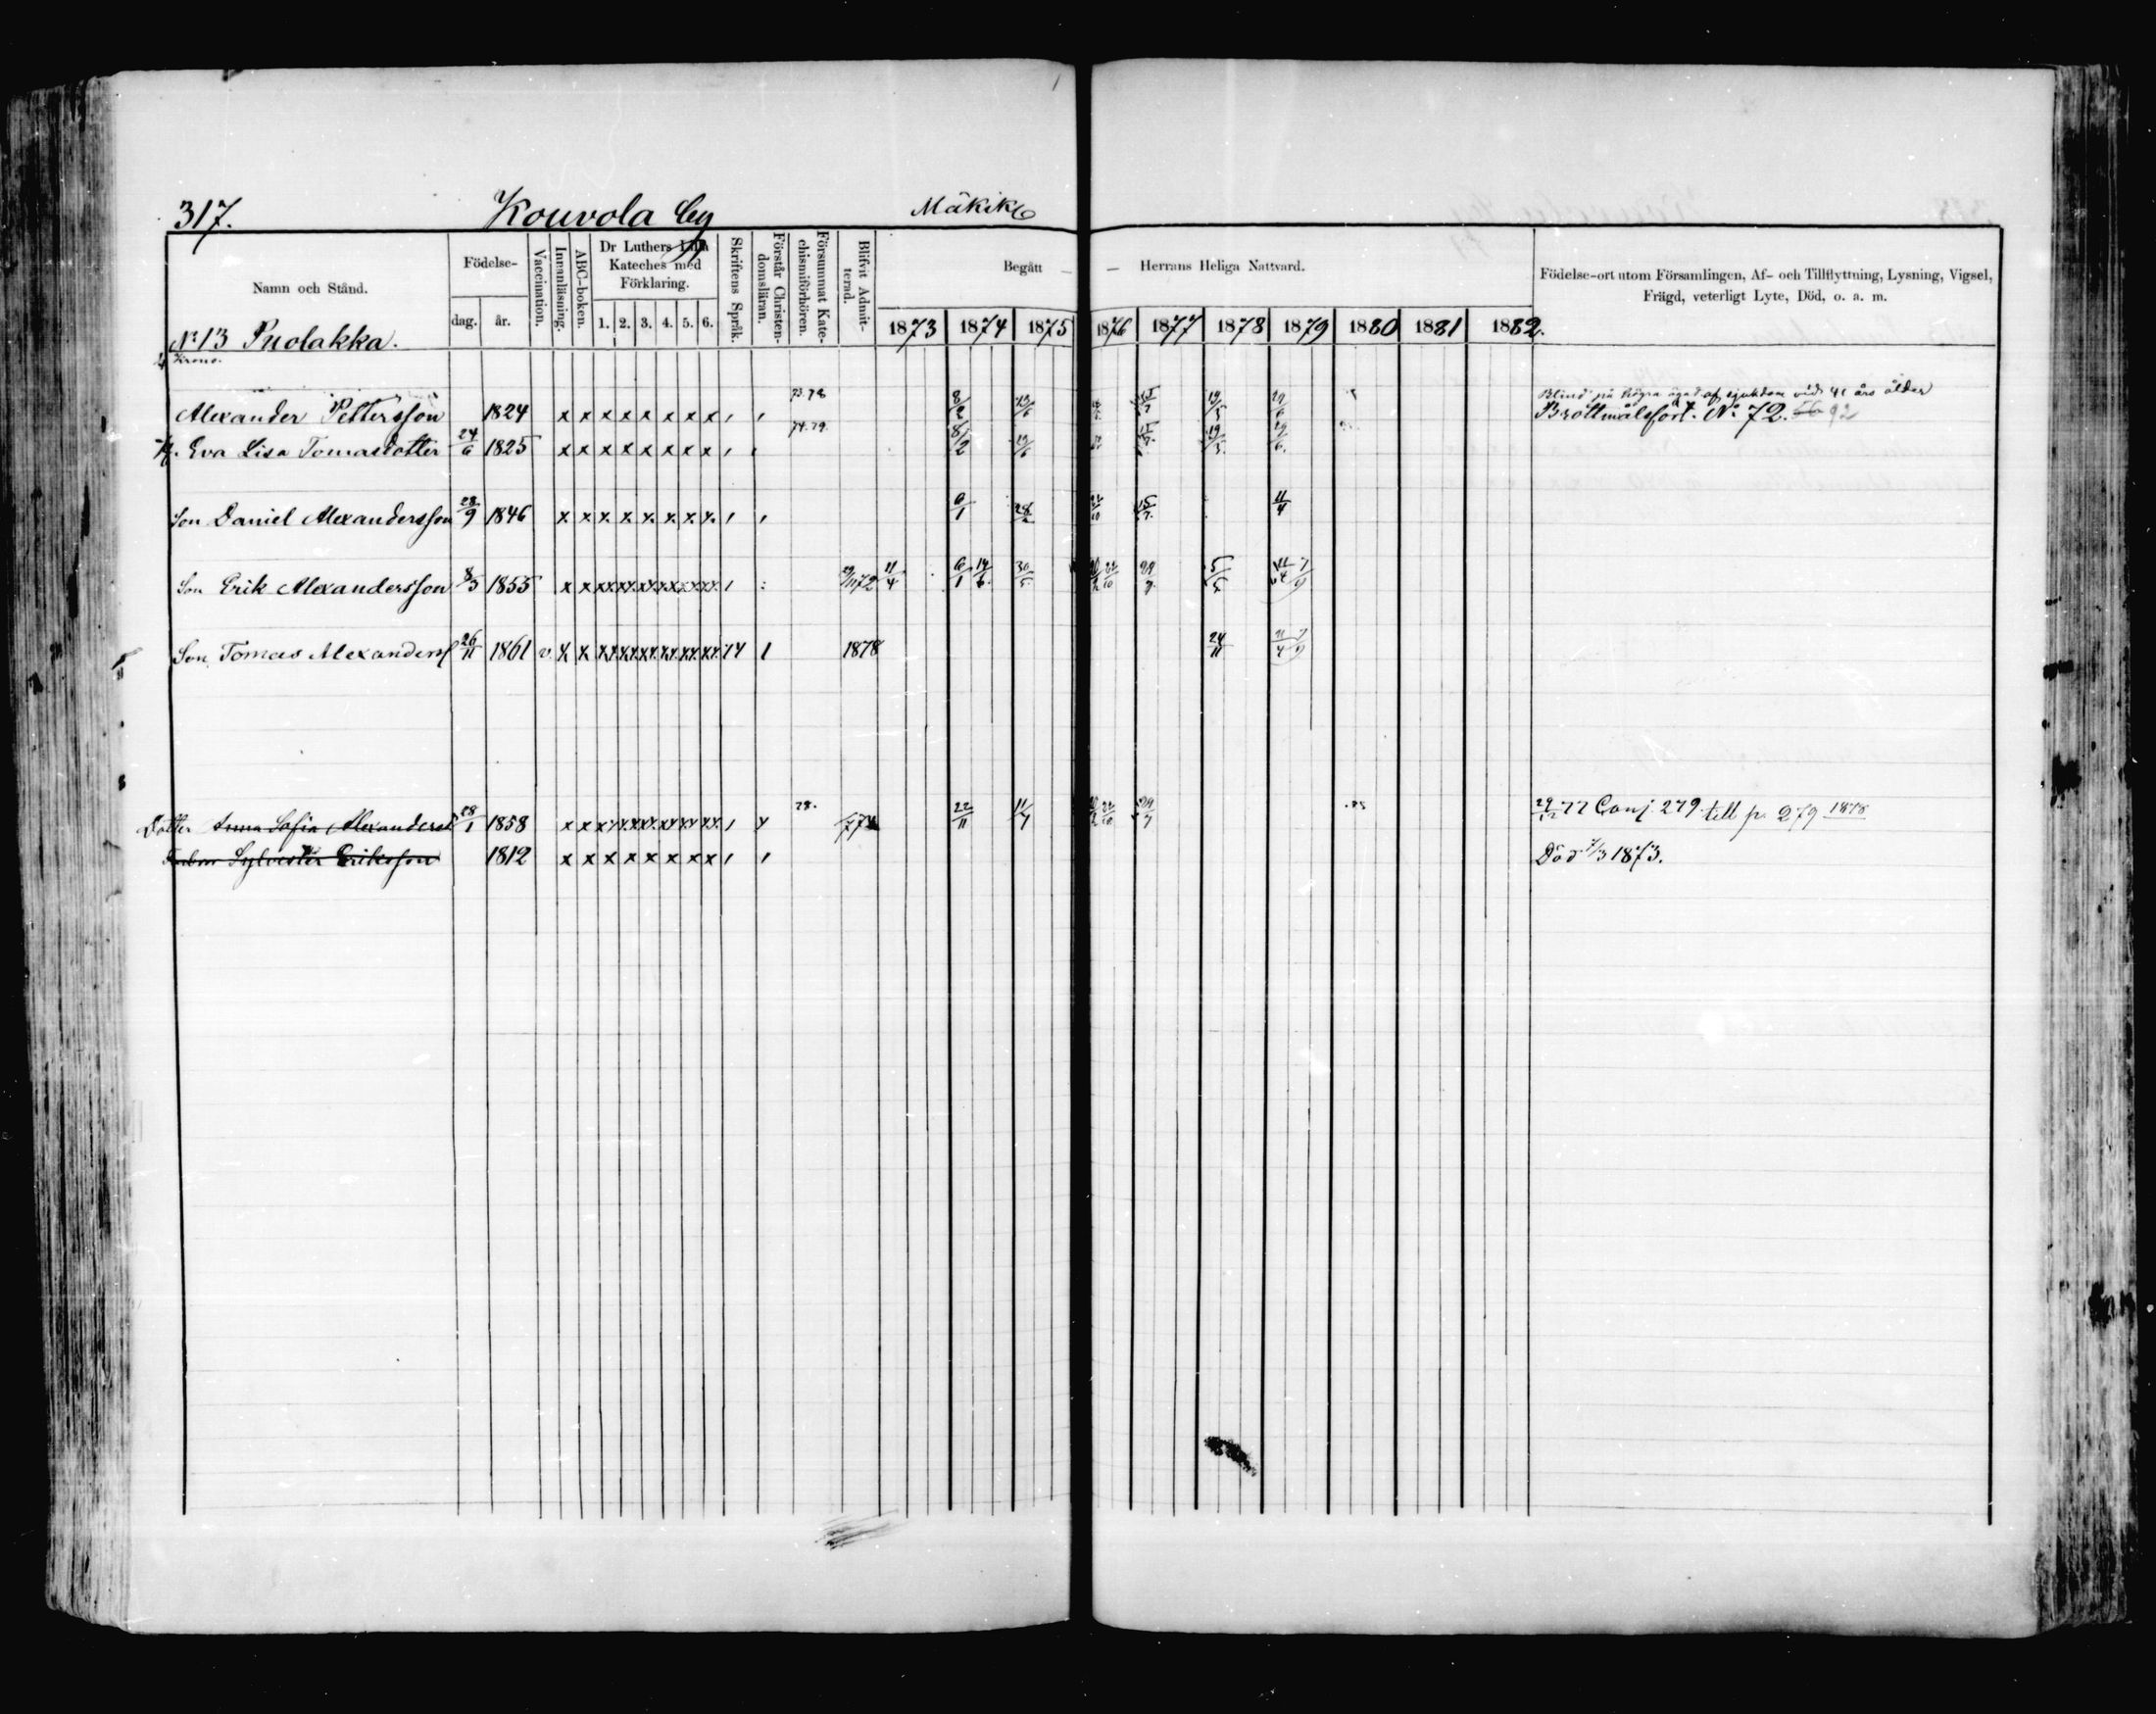 317. Kouvola by Mäkikl
Namn och Stånd. Födelse- dag. år. Vaccination. Innanläsning. ABC-boken. Dr Luthers Lilla Kateches med Förklaring. 1. 2. 3. 4. 5. 6. Skriftens Språk. Förstår Christendomsläran. Försummat Katechismiförhören. Blifvit Admitterad. Begått — — Herrans Heliga Nattvard. Födelse-ort utom Församlingen, Af- och Tillflyttning, Lysning, Vigsel, Frägd, veterligt Lyte, Död, o. a. m.
1873 1874 1875 1876 1877 1878 1879 1880 1881 1882.
No 13 Puolakka.
Krono.
73.78 Blind på högra ögat af sjukdom vid 41 års ålder
Alexander Pettersson 1824 x x x x x x x x 8/2 13/6 15/7 19/5 29/6 Brottmålsfört. No 72. 56 92
74.79.
H. Eva Lisa Tomasdotter 24/6 1825 x x x x x x x x 8/2 13/6 15/7. 19/5. 29/6.
Son Daniel Alexandersson 28/9 1846 x x x x x x x x 6/1 22/10 15/7. 11/4
Son Erik Alexandersson 8/5 1855 x x xx xx xx xx xx xx 1872 11/4 6/1 14/6. 30/5. 22/10 29/7. 5/5 11/4 7/9
Son Tomas Alexanderss 26/11 1861 v x x xx xx xx xx xx xx 14 1 1878 24/11 11/4 7/9
78.
Dotter Anna Sofia Alexandersd 28/1 1858 x x xx xx xx xx xx xx 774 22/11 11/4 22/10 29/7 29/12 77 Conj. 279 till p. 279 1878
Sylvester Eriksson 1812 x x x x x x x x Död 7/3 1873.